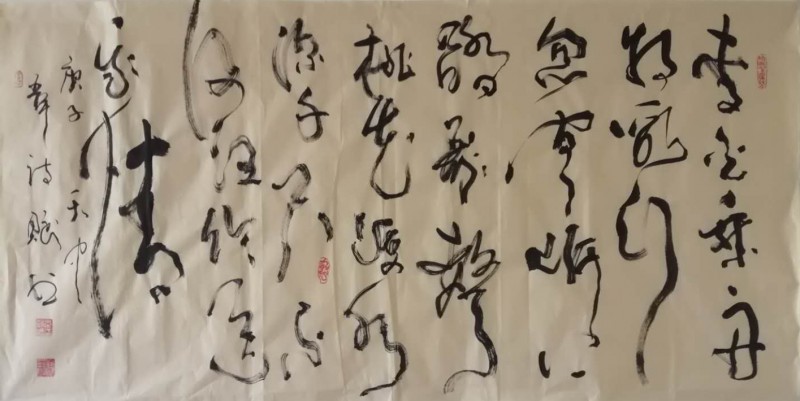 李白乘舟
将欲行
忽闻岸上
踏歌声
桃花潭水
深千尺不
及汪伦送
我情
庚子
诗赋